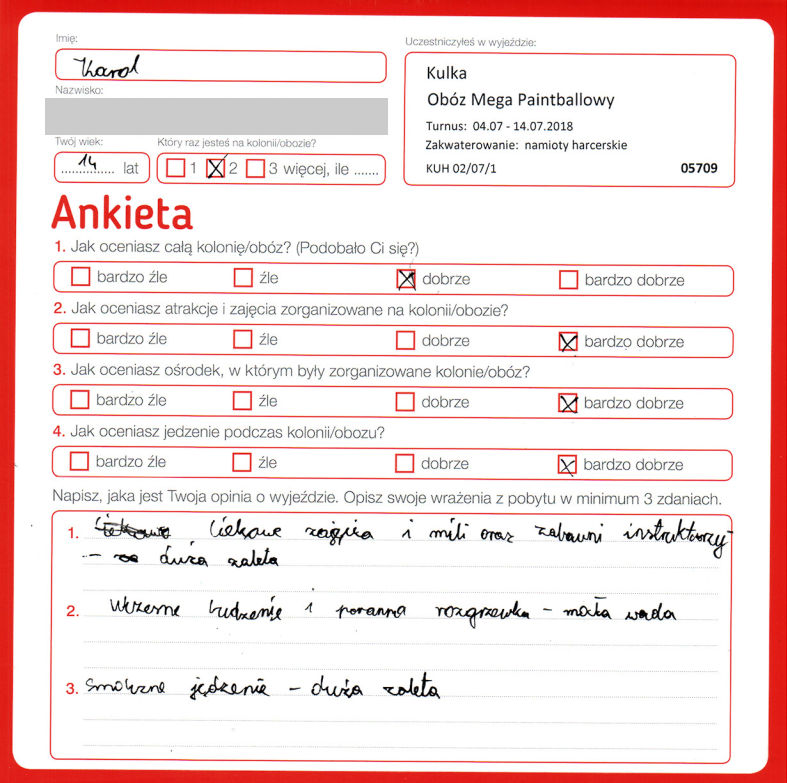 Imię:
Karol
Nazwisko:
Twój wiek:
14 lat
Który raz jesteś na kolonii/obozie?
1 2 3 więcej, ile .......
Uczestniczyłeś w wyjeździe:
Kulka
Obóz Mega Paintballowy
Turnus: 04.07 - 14.07.2018
Zakwaterowanie: namioty harcerskie
KUH 02/07/1 05709
Ankieta
1. Jak oceniasz całą kolonię/obóz? (Podobało Ci się?)
bardzo źle źle dobrze bardzo dobrze
2. Jak oceniasz atrakcje i zajęcia zorganizowane na kolonii/obozie?
bardzo źle źle dobrze bardzo dobrze
3. Jak oceniasz ośrodek, w którym były zorganizowane kolonie/obóz?
bardzo źle źle dobrze bardzo dobrze
4. Jak oceniasz jedzenie podczas kolonii/obozu?
bardzo źle źle dobrze bardzo dobrze
Napisz, jaka jest Twoja opinia o wyjeździe. Opisz swoje wrażenia z pobytu w minimum 3 zdaniach.
1. Ciekawe zajęcia i mili oraz zabawni instruktorzy
- duża zaleta
2. Wczesne budzenie i poranna rozgrzewka - mała wada
3. Smaczne jedzenie - duża zaleta